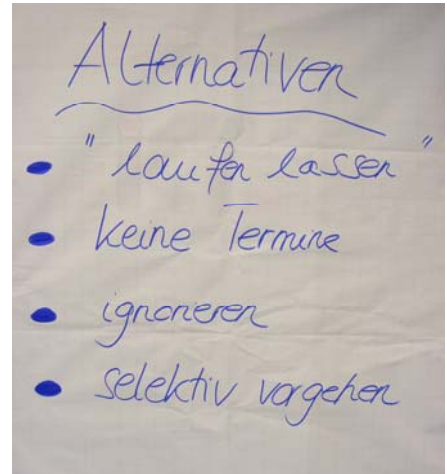 Alternativen
• "laufen lassen"
• keine Termine
• ignorieren
• selektiv vorgehen